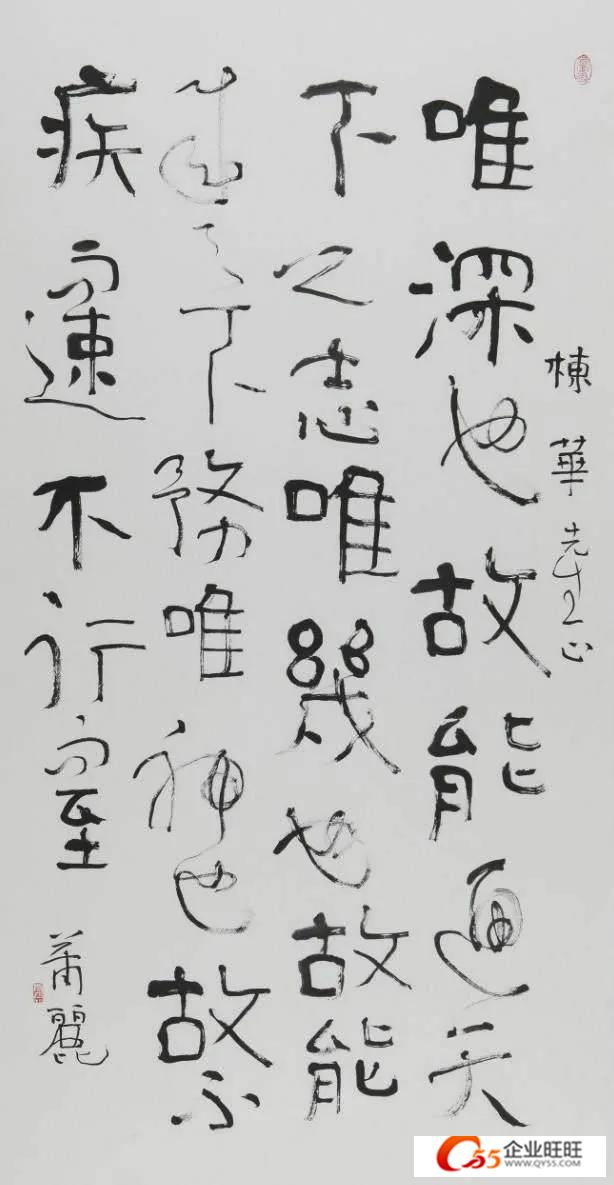 棟華先生正
唯深也故能通天
下之志唯幾也故能
成下務唯神也故不
疾而速不行而至
麗
55企业旺旺
WWW.QY55.COM